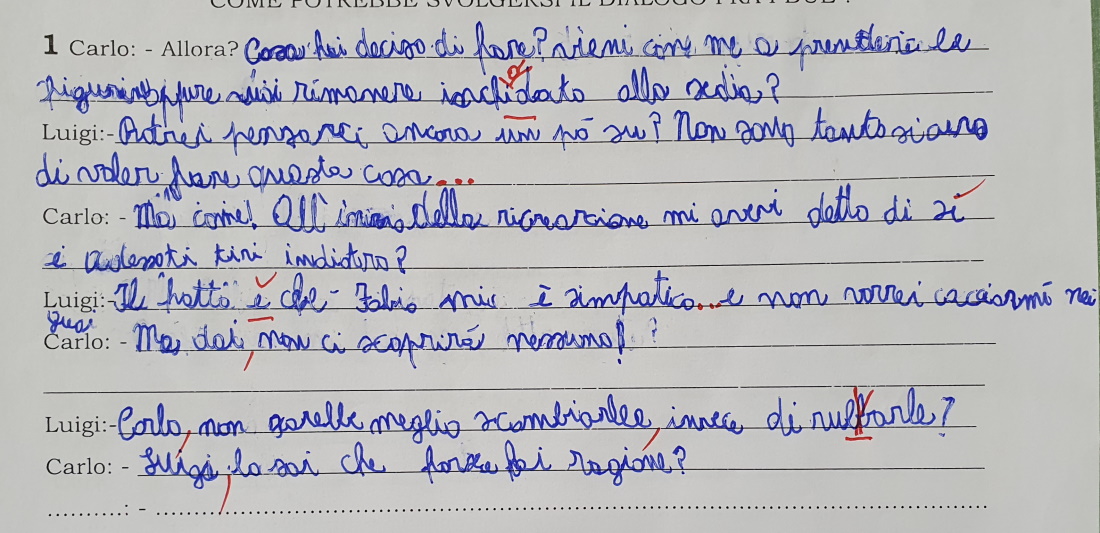 COME POTREBBE SVOLGERSI IL DIALOGO FRA I DUE ?
1 Carlo: - Allora? Cosa hai deciso di fare? Vieni con me a prenderci le
figurine oppure vuoi rimanere inchidato alla sedia?
Luigi:- Potrei pensarci ancora un pó su? Non sono tanto sicuro
di voler fare questa cosa...
Carlo: - Ma come! All'inizio della ricreazione mi avevi detto di sí
e adesso ti tiri indietro?
Luigi:- Il fatto è che Fabio mi è simpatico... e non vorrei cacciarmi nei
guai
Carlo: - Ma dai, non ci scoprirá nessuno!
Luigi:- Carlo, non sarebbe meglio scambiarle, invece di rubarle?
Carlo: - Luigi, lo sai che forse hai ragione?
..........: - ..........